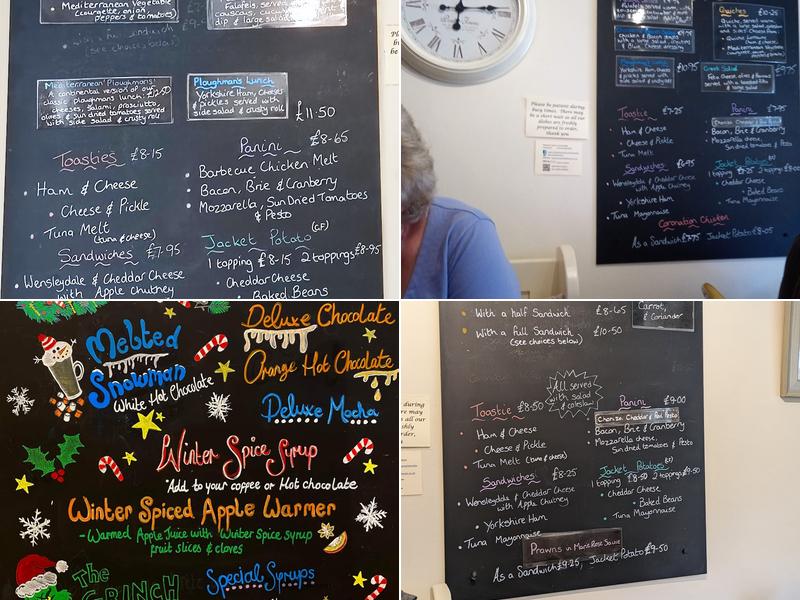 Mediterranean Vegetable
(courgette, onion,
peppers & tomatoes)
Falafels, served
couscous,
dip & large salad
with a full sandwich
(see choices below)
Mediterranean Ploughmans!
A continental version of our
classic ploughmans lunch, £12.50
cheeses, salami, prosciutto,
olives & sun dried tomatoes served
with side salad & crusty roll
Ploughman's Lunch
Yorkshire Ham, Cheeses
& pickles served with
side salad & crusty roll
£11.50
Toasties £8-15
Ham & Cheese
Cheese & Pickle
Tuna Melt
(tuna & cheese)
Sandwiches £7-95
Wensleydale & Cheddar Cheese
with Apple Chutney
Panini £8-65
Barbecue Chicken Melt
Bacon, Brie & Cranberry
Mozzarella, Sun Dried Tomatoes
& Pesto
Jacket Potato (GF)
1 topping £8-15 2 toppings £8-95
Cheddar Cheese
Baked Beans
Please be patient during
busy times. There may
be a short wait as all our
dishes are freshly
prepared to order,
thank you
Quiches £10-95
Quiche, served warm
Ploughman's Lunch
Yorkshire Ham,
& pickles served with
side salad & crusty roll
£10.95
Greek Salad
Feta Cheese, olives &
Toastie £7-25
Ham & Cheese
Cheese & Pickle
Tuna Melt
Sandwiches £6.95
Wensleydale & Cheddar Cheese
with Apple Chutney
Yorkshire Ham
Tuna Mayonnaise
Panini £7.95
Bacon, Brie & Cranberry
Mozzarella cheese,
Sun dried tomatoes & Pesto
Jacket Potatoes
1 topping £7-25 2 toppings
Cheddar Cheese
Baked Beans
Tuna Mayonnaise
Coronation Chicken
As a Sandwich £7.75 Jacket Potato £8-05
Melted
Snowman
White Hot Chocolate
Deluxe Chocolate
Orange Hot Chocolate
Deluxe Mocha
Winter Spice Syrup
*Add to your coffee or Hot chocolate
Winter Spiced Apple Warmer
- Warmed Apple Juice with Winter Spice syrup
fruit slices & cloves
The
GRINCH
Special Syrups
With a half Sandwich £8-65
With a full Sandwich £10-50
(see choices below)
Carrot,
& Coriander
All served
with salad
& coleslaw
Toastie £8-50
Ham & Cheese
Cheese & Pickle
Tuna Melt (tuna & cheese)
Sandwiches £8-25
Wensleydale & Cheddar Cheese
with Apple Chutney
Yorkshire Ham
Tuna Mayonnaise
Panini £9-00
Chorizo, Cheddar & Red Pesto
Bacon, Brie & Cranberry
Mozzarella cheese,
Sun dried tomatoes & Pesto
Jacket Potatoes
1 topping £8-50 2 toppings £9-50
Cheddar Cheese
Baked Beans
Tuna Mayonnaise
Prawns in Marie Rose Sauce
As a Sandwich £9-25, Jacket Potato £9-50